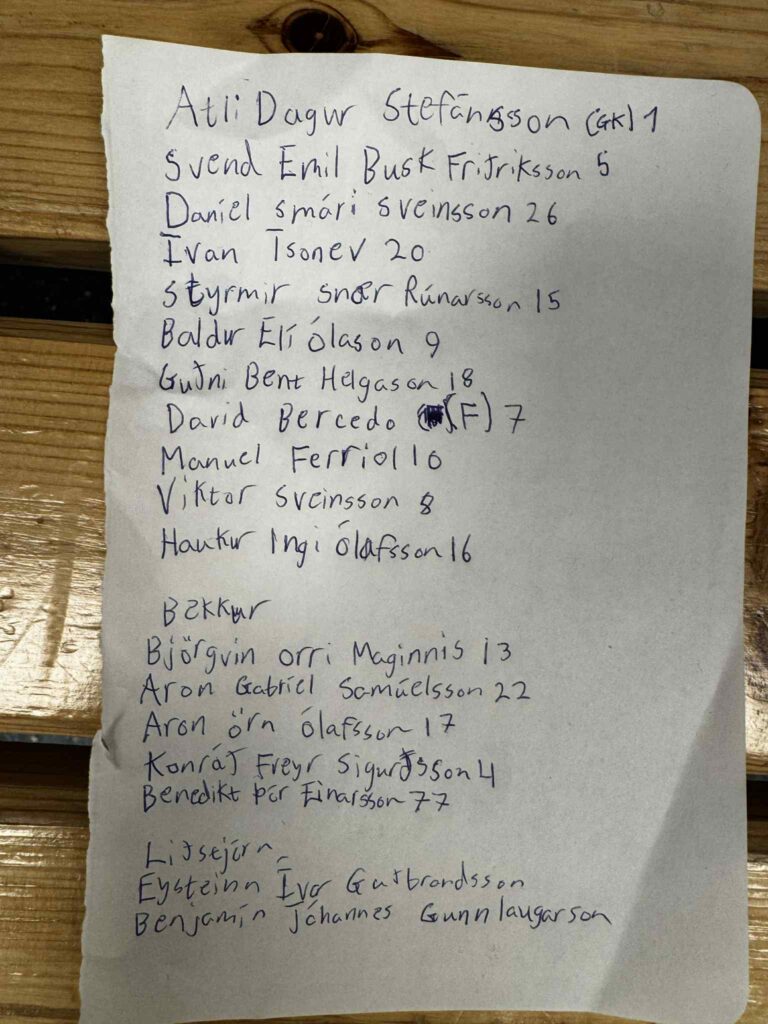 Atli Dagur Stefánsson (GK) 1
Svend Emil Busk Friðriksson 5
Daníel smári sveinsson 26
Ivan Tsonev 20
Styrmir snær Rúnarsson 15
Baldur Elí Ólason 9
Guðni Bent Helgason 18
David Bercedo (F) 7
Manuel Ferriol 10
Viktor Sveinsson 8
Haukur Ingi Ólafsson 16
Bekkur
Björgvin orri Maginnis 13
Aron Gabríel Samúelsson 22
Aron örn Ólafsson 17
Konráð Freyr Sigurðsson 4
Benedikt Þór Einarsson 77
Liðsejórn
Eysteinn Ívar Guðbrandsson
Benjamín Jóhannes Gunnlaugarson